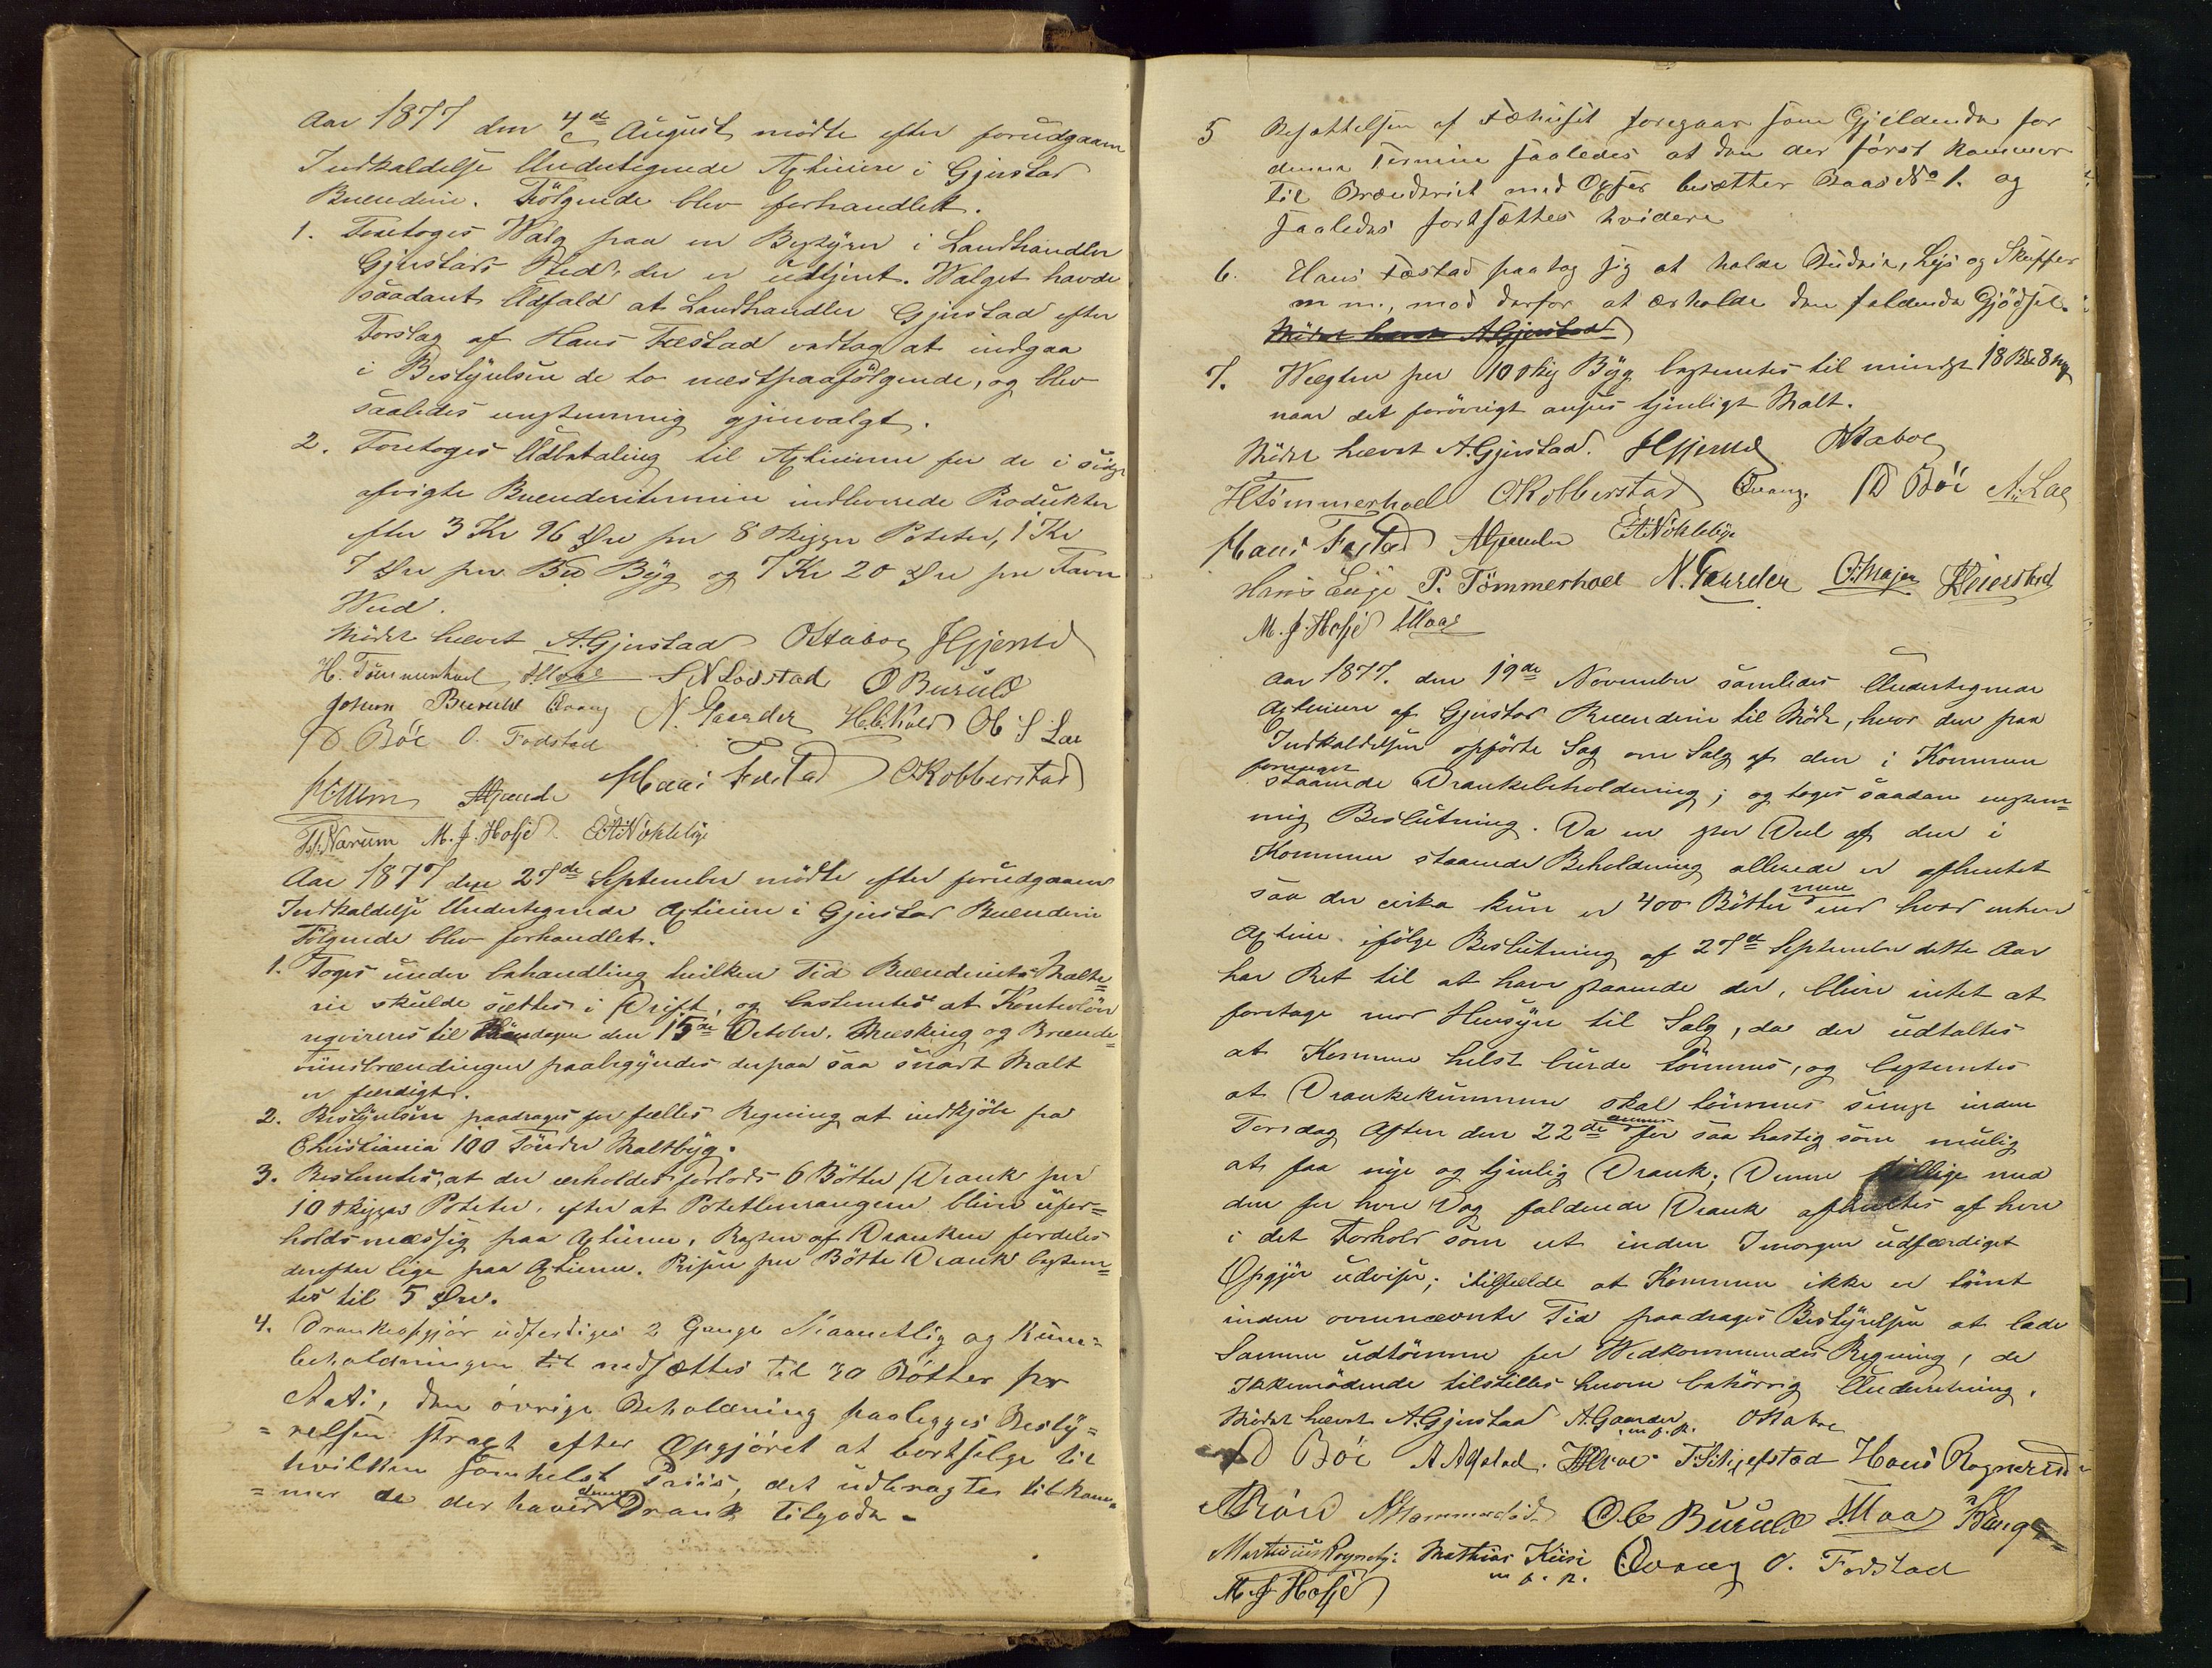 Aar 1877 den 4de August mödte efter forudgaaen
Indkaldelse Undertegnede Aktieiere i Gjestad
Brænderie. Fölgende blev forhandlet.
1. Foretoges Walg paa en Bestÿrer i Landhandler
Gjestads Sted, der er udtjent. Walget havde
saadant Udfald at Landhandler Gjestad efter
Forslag af Hans Fæstad vedtog at indgaa
i Bestÿrelsen de to næstpaafölgende, og blev
saaledes enstemmig gjenvalgt.
2. Foretoges Udbetaling til Aktieierne for de i sidst
afvigte Brænderitermin indleverede Produkter
efter 3 Kr 96 Øre per 8 Skjepper Poteter, 1 Kr
7 Øre per Bpd Bÿg og 7 Kr 20 Øre per Favn
Wed.
Mödet hævet A. Gjestad O Staboe HGjerud
H. Tömmerhoel T Moae S N Lodstad O Buruld
Johan Buruld Evang N. Gaarder H. Ekold Ole S Lae
D Böe O. Fodstad
Hans Fæstad O Kobberstad
T. Narum M. J. Hofje E A Nöklebÿe
Aar 1877 den 27de September mödte efter forudgaaen
Indkaldelse Undertegnede Aktieiere i Gjestad Brænderie
Fölgende blev forhandlet.
1. Toges under behandling hvilken Tid Brænderiets Malte=
rie skulde sættes i Drift, og bestemtes at Kontrolön
reqvireres til Mandagen den 15de October. Mæsking og Brænde=
viinsbrændingen paabegÿndes derpaa saa snart Malt
er færdigt.
2. Bestÿrelsen paadrages for fælles Regning at indkjöbe fra
Christiania 100 Tönder Maltbÿg.
3. Bestemtes, at der erholdes forlods 6 Bötter Drank per
10 Skjeppes Poteter, efter at Potetlevrangerne blive ufor=
holdsmæssig paa Aktierne, Resten af Dranken fordeles
derefter lige paa Aktierne. Prisen per Bötte Drank bestem=
tes til 5 Øre.
4. Drankeopgjör udferdiges 2 Gange Maanetlig og Kum=
beholdningen til nedsættes til 30 Bötter pr
Akti, den övrige Beholdning paalegges Bestÿ=
=relsen stragt efter Opgjöret at bortselge til
hvilken somhelst Priis, det udbragte tilkom=
=mer de der haver denne Drank tilgode -
5 Besættelsen af Fæhuset foregaar som Gjeldende for
denne Termin saaledes at den der först kommer
til Brænderiet med Opsee besætter Baas No 1. og
saaledes fortsættes videre
6. Hans Fæstad paatog sig at holde Budeie, Lÿs og Skuffer
m m., mod derfor at erholde den faldende Gjödsel.
Mödet hævet A Gjestad
7. Wægten per 10 Skj Bÿg bestemtes til mindst 18 Bpd 8 Mrk
naar det forövrigt ansees tjenligt Malt.
Mödet hævet A. Gjestad. HGjerud OStaboe
H Tömmerhoel O Kobberstad Evang. D Böe A. Lae
Hans Fæstad E A Nöklebÿe
Hans Enge P. Tömmerhoel N. Gaarder
M. J. Hofje T Moae
Aar 1877. den 19de November samledes Undertegnede
Aktieiere af Gjestad Brænderie til Möde, hvor den paa
Indkaldelsen opförte Sag om Salg af den i Kommen
forenaar staaende Drankebeholdning; og toges saadan enstem=
mig Beslutning. Da en stor Deel af den i
Kommen staaende Beholdning allerede er afhentet
saa der cirka kun er 400 Bötter mere end hvad enhver
Aktie ifölge Beslutning af 27de September dette Aar
har Ret til at have staaende der, bliver intet at
foretage med Hensÿn til Salg, da der udtaltes
at Kommen helst burde tömmes, og bestemtes
at Drankekummen skal tömmes senest inden
Torsdag Aften den 22de dennes for saa hastig som mulig
at faa nÿe og tjenlig Drank; Denne tillige med
den for hver Dag faldende Drank afhentes af hver
i det Forhold som et inden Imorgen udfærdiget
Opgjör udviser; itilfælde at Kommen ikke er tömt
inden ovennævnte Tid paadrages Bestÿrelsen at lade
Samme udtömme for Wedkommendes Regning, de
Ikkemödende tilstilles herom behörrig Underretning.
Mödet hævet A. Gjestad A. Gaarder m. p. p. O Staboe
D Böe T. Skijefstad Hans Ragnerud
Ole Buruld T Moae
Mathias Kiisi m. p. p. Evang O. Fodstad
M. J Hofje